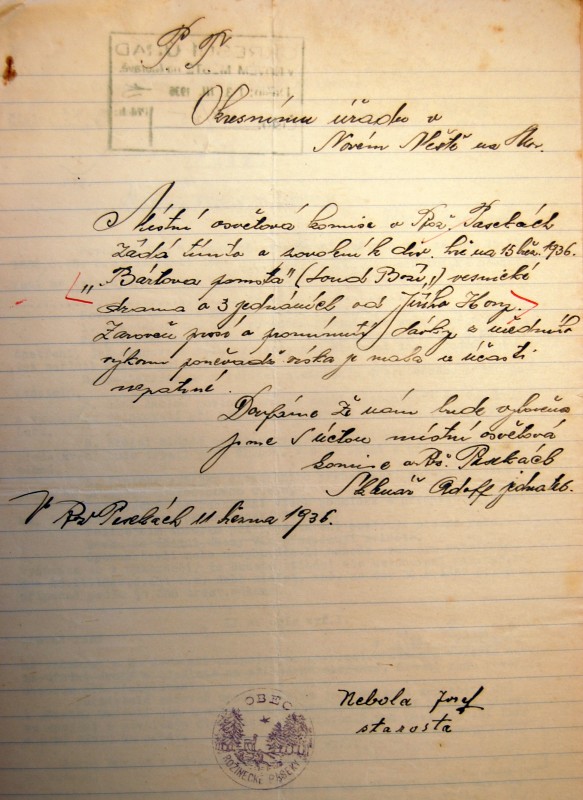 P. P.
Okresnímu úřadu v
Novém Městě na Mor.
Místní osvětová komise v Rož. Pasekách
žádá tímto o povolení k div. hře na 15 břez. 1936.
„Bártova pomsta" (Soud Boží„) vesnické
drama o 3 jednáních od Jiřího Hory.
Zároveň prosí o prominutí dávky a úředních
výkonů poněvadž síska je malá a účast
nepatrné.
Doufáme že nám bude vyhověno
jsme s úctou místní osvětová
komise v Rož. Pasekách
Adolf jednatel.
V Rož Pasekách 11 března 1936.
Nebola Josef
starosta
OBEC
ROŽINECKÉ PASEKY